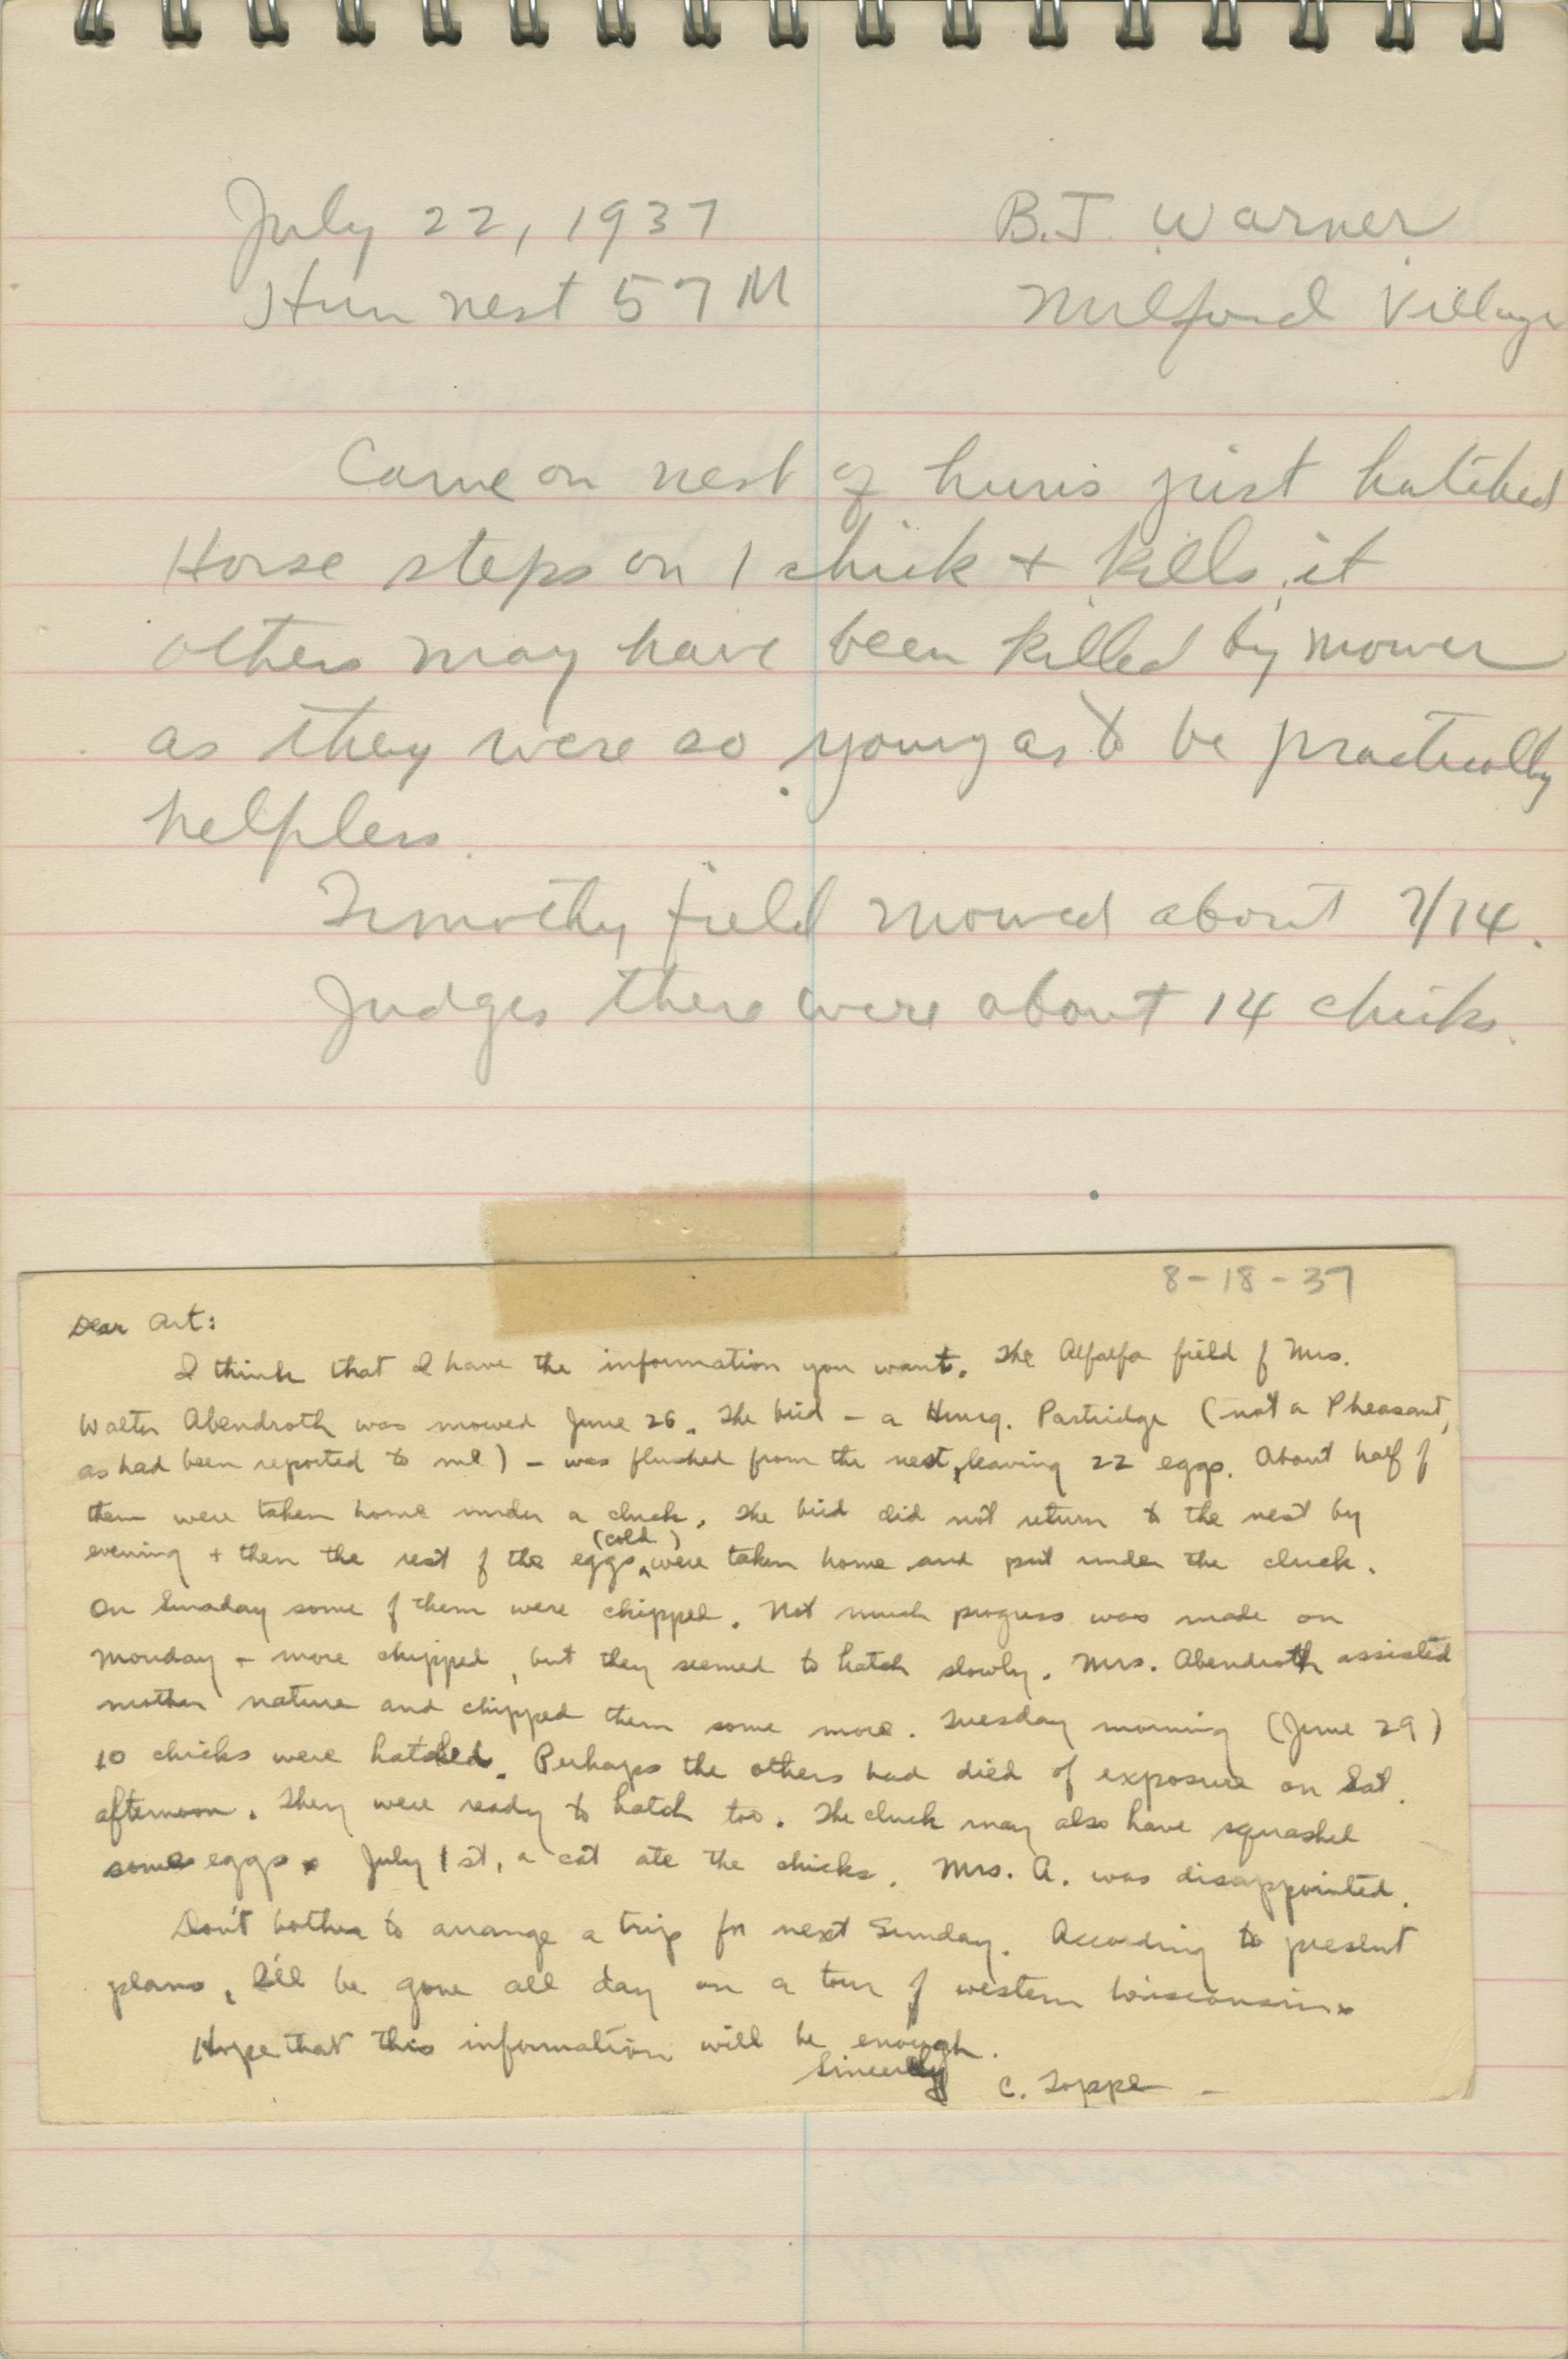 July 22, 1937 B.J. Warner
Hun nest 57 M Milford Village
Came on nest of huns just hatched
Horse steps on 1 chick + kills it
others may have been killed by mower
as they were so young as to be practically
helpless.
Timothy field mowed about 7/14.
Judges there were about 14 chicks.
8-18-37
Dear Art:
I think that I have the information you want. The Alfalfa field of Mrs.
Walter Abendroth was mowed June 26. The bird - a Hung. Partridge (not a Pheasant,
as had been reported to me) - was flushed from the nest, leaving 22 eggs. About half of
them were taken home under a cluck. The bird did not return to the nest by
evening + then the rest of the eggs (cold) were taken home and put under the cluck.
On Sunday some of them were chipped. Not much progress was made on
Monday - more chipped, but they seemed to hatch slowly. Mrs. Abendroth assisted
mother nature and chipped them some more. Tuesday morning (June 29)
10 chicks were hatched. Perhaps the others had died of exposure on Sat.
afternoon. They were ready to hatch too. The cluck may also have squashed
some eggs. July 1st, a cat ate the chicks. Mrs. A. was disappointed.
Don't bother to arrange a trip for next Sunday. According to present
plans, I'll be gone all day on a tour of western Wisconsin.
Hope that this information will be enough.
Sincerely
C. Toppe -